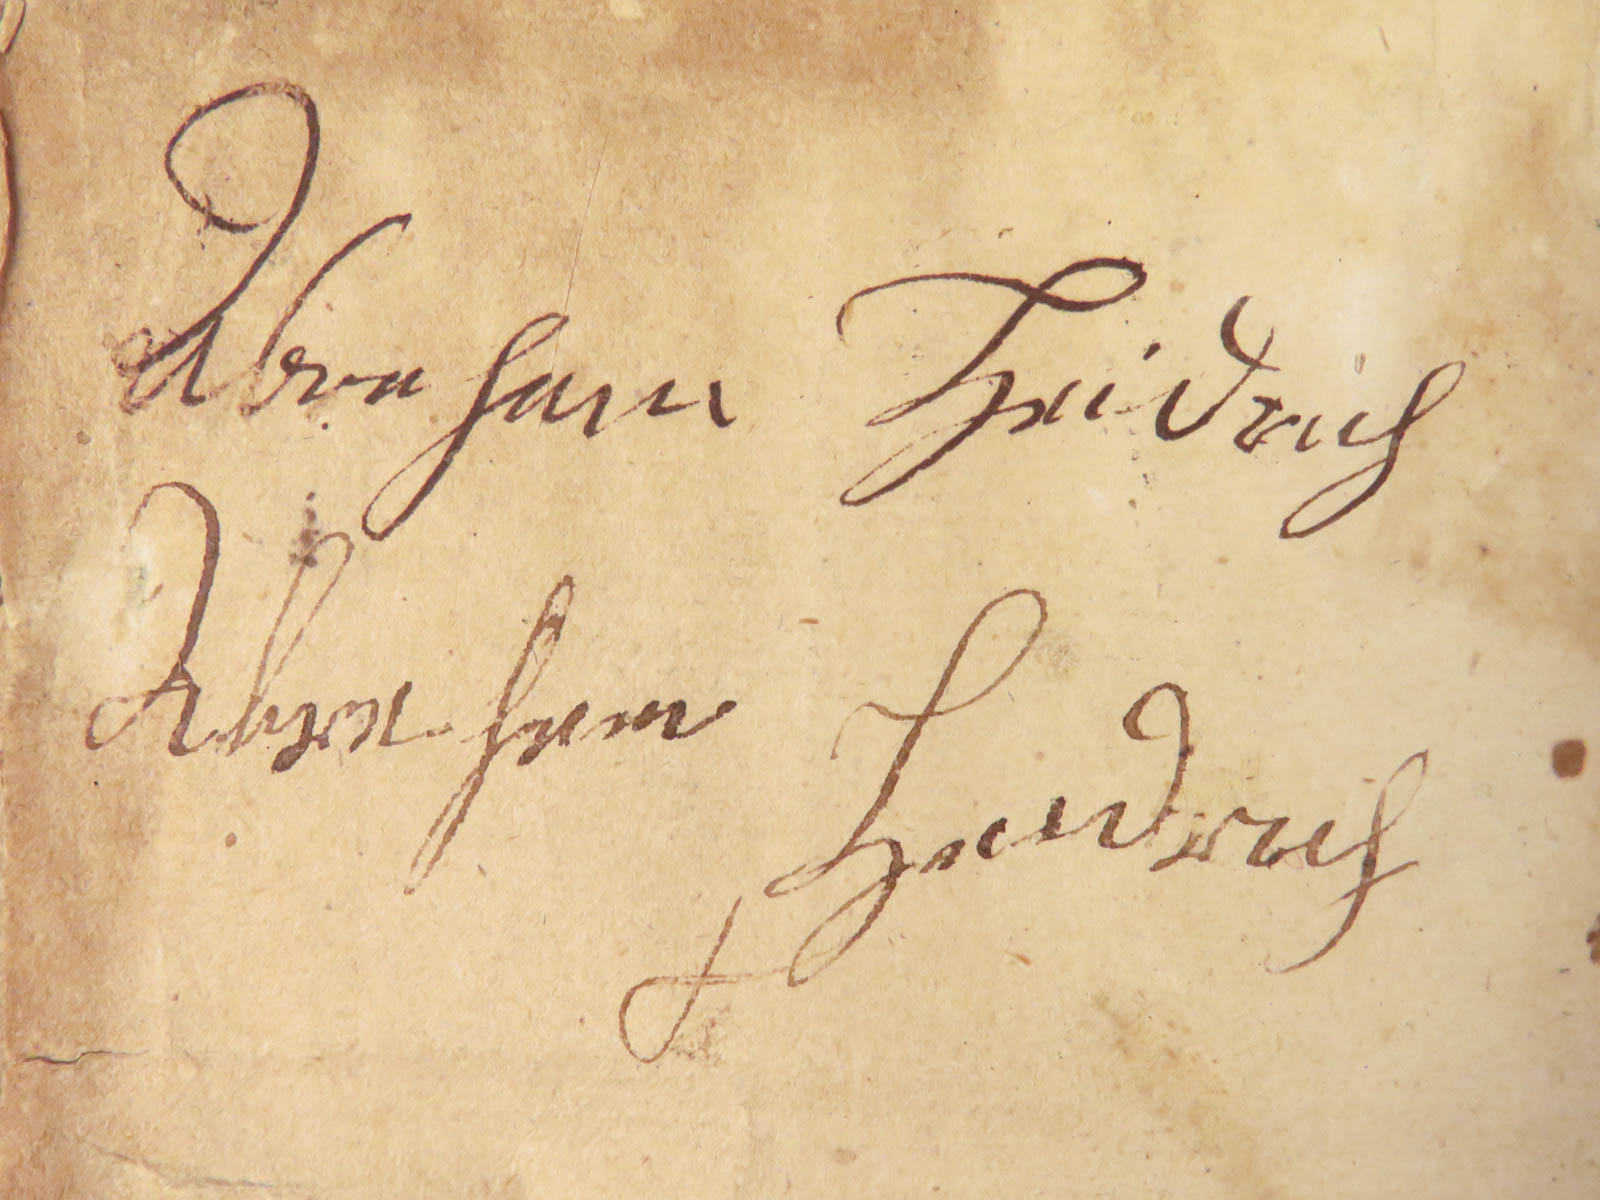 Abraham Heidrich
Abraham Heidrich